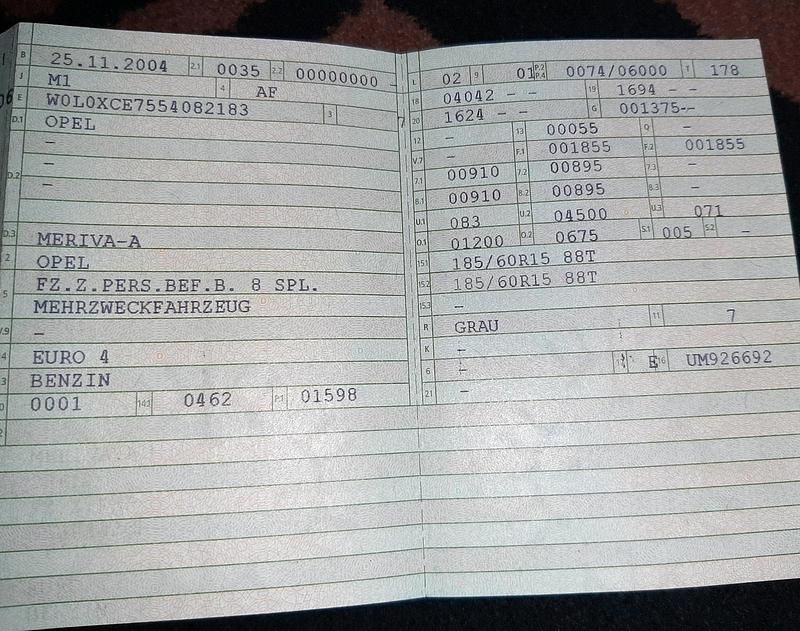 B 25.11.2004 2.1 0035 2.2 00000000 -
J M1 4 AF
E W0L0XCE7554082183 3
D.1 OPEL
-
D.2 -
-
D.3 MERIVA-A
2 OPEL
5 FZ.Z.PERS.BEF.B. 8 SPL.
MEHRZWECKFAHRZEUG
V.9 -
EURO 4
BENZIN
0001 14.1 0462 P.1 01598
L 02 9 01 P.2 P.4 0074/06000 T 178
18 04042 - - 19 1694 - -
20 1624 - - G 001375--
12 - 13 00055 Q -
V.7 - F.1 001855 F.2 001855
7.1 00910 7.2 00895 7.3 -
8.1 00910 8.2 00895 8.3 -
U.1 083 U.2 04500 U.3 071
O.1 01200 O.2 0675 S.1 005 S.2 -
15.1 185/60R15 88T
15.2 185/60R15 88T
15.3 -
R GRAU 11 7
K -
6 - E 16 UM926692
21 -